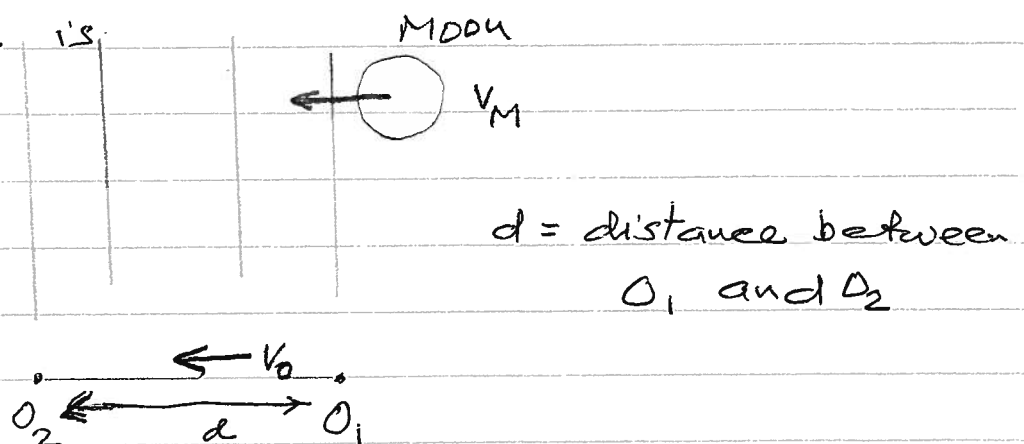 i's
Moon
V_M
d = distance between
O_1 and O_2
V_0
O_2 d O_1